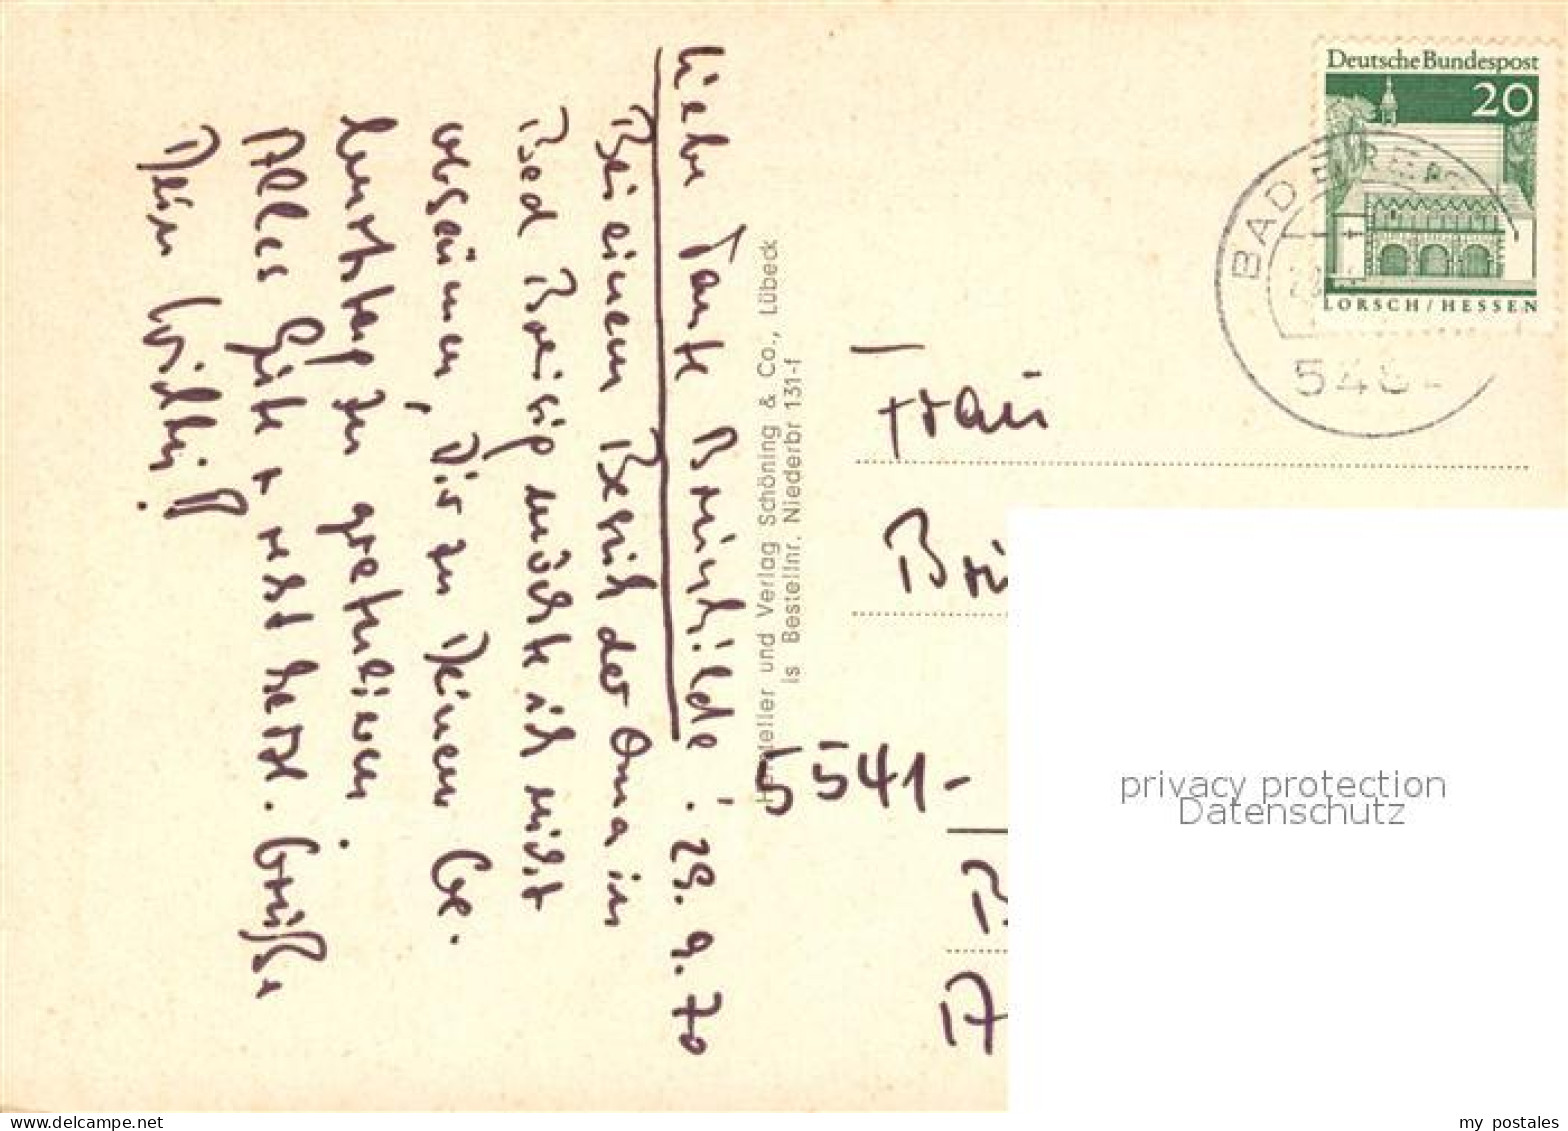 Liebe Tante Brünhilde! 29. 9. 70
Bei einem Besuch der Oma in
Bad Breisig möchte ich nicht
versäumen, Dir zu Deinem Ge-
burtstag zu gratulieren.
Alles Gute u. recht herzl. Grüße
Dein Willi
Hersteller und Verlag Schöning & Co., Lübeck
Is Bestellnr. Niederbr 131-f
Deutsche Bundespost
20
LORSCH/HESSEN
BAD
548
Frau
5541-
privacy protection
Datenschutz
my postales